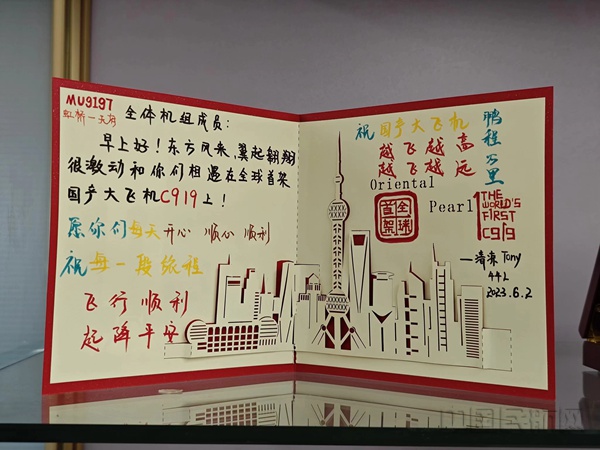 MU9197
虹桥—天府
全体机组成员：
早上好！东方风来，翼起翱翔
很激动和你们相遇在全球首架
国产大飞机C919上！
愿你们每天开心 顺心 顺利
祝每一段旅程
飞行顺利
起降平安
祝国产大飞机
越飞越高
越飞越远
鹏程万里
Oriental
Pearl
全球首架
1
THE
WORLD'S
FIRST
C919
Tony
44L
2023.6.2
中国民航网